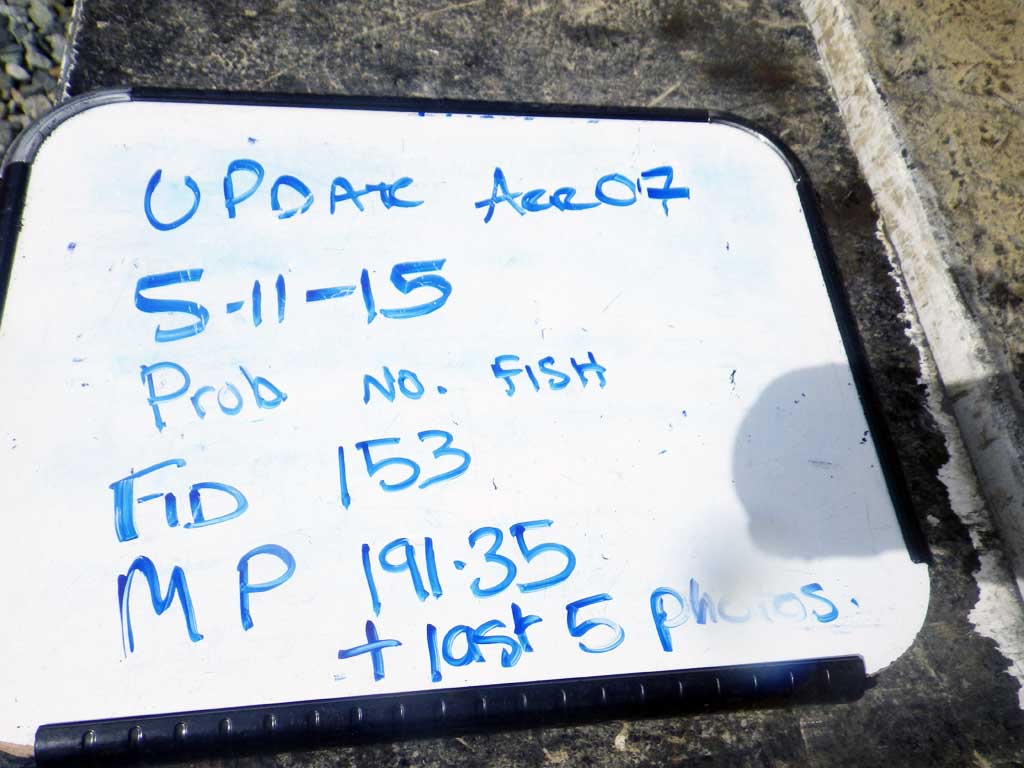 UPDATE Acr07
5-11-15
Prob No. FISH
FID 153
MP 191.35
+ last 5 photos.